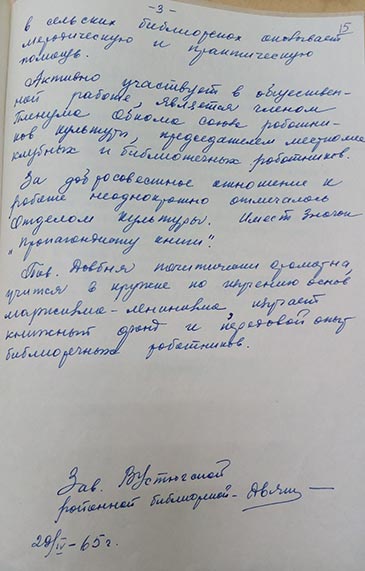 - 3 -
15
в сельских библиотеках оказывает
методическую и практическую
помощь.
Активно участвует в обществен-
ной работе, является членом
Пленума Обкома союза работни-
ков культуры, председателем месткома
клубных и библиотечных работников.
За добросовестное отношение к
работе неоднократно отмечалась
Отделом культуры. Имеет значок
"Пропагандисту книги".
Тов. Довбня политически грамотна,
учится в кружке по изучению основ
марксизма-ленинизма, изучает
книжный фонд и передовой опыт
библиотечных работников.
Зав. ВУстюгской
районной библиотекой -
20/IV-65 г.